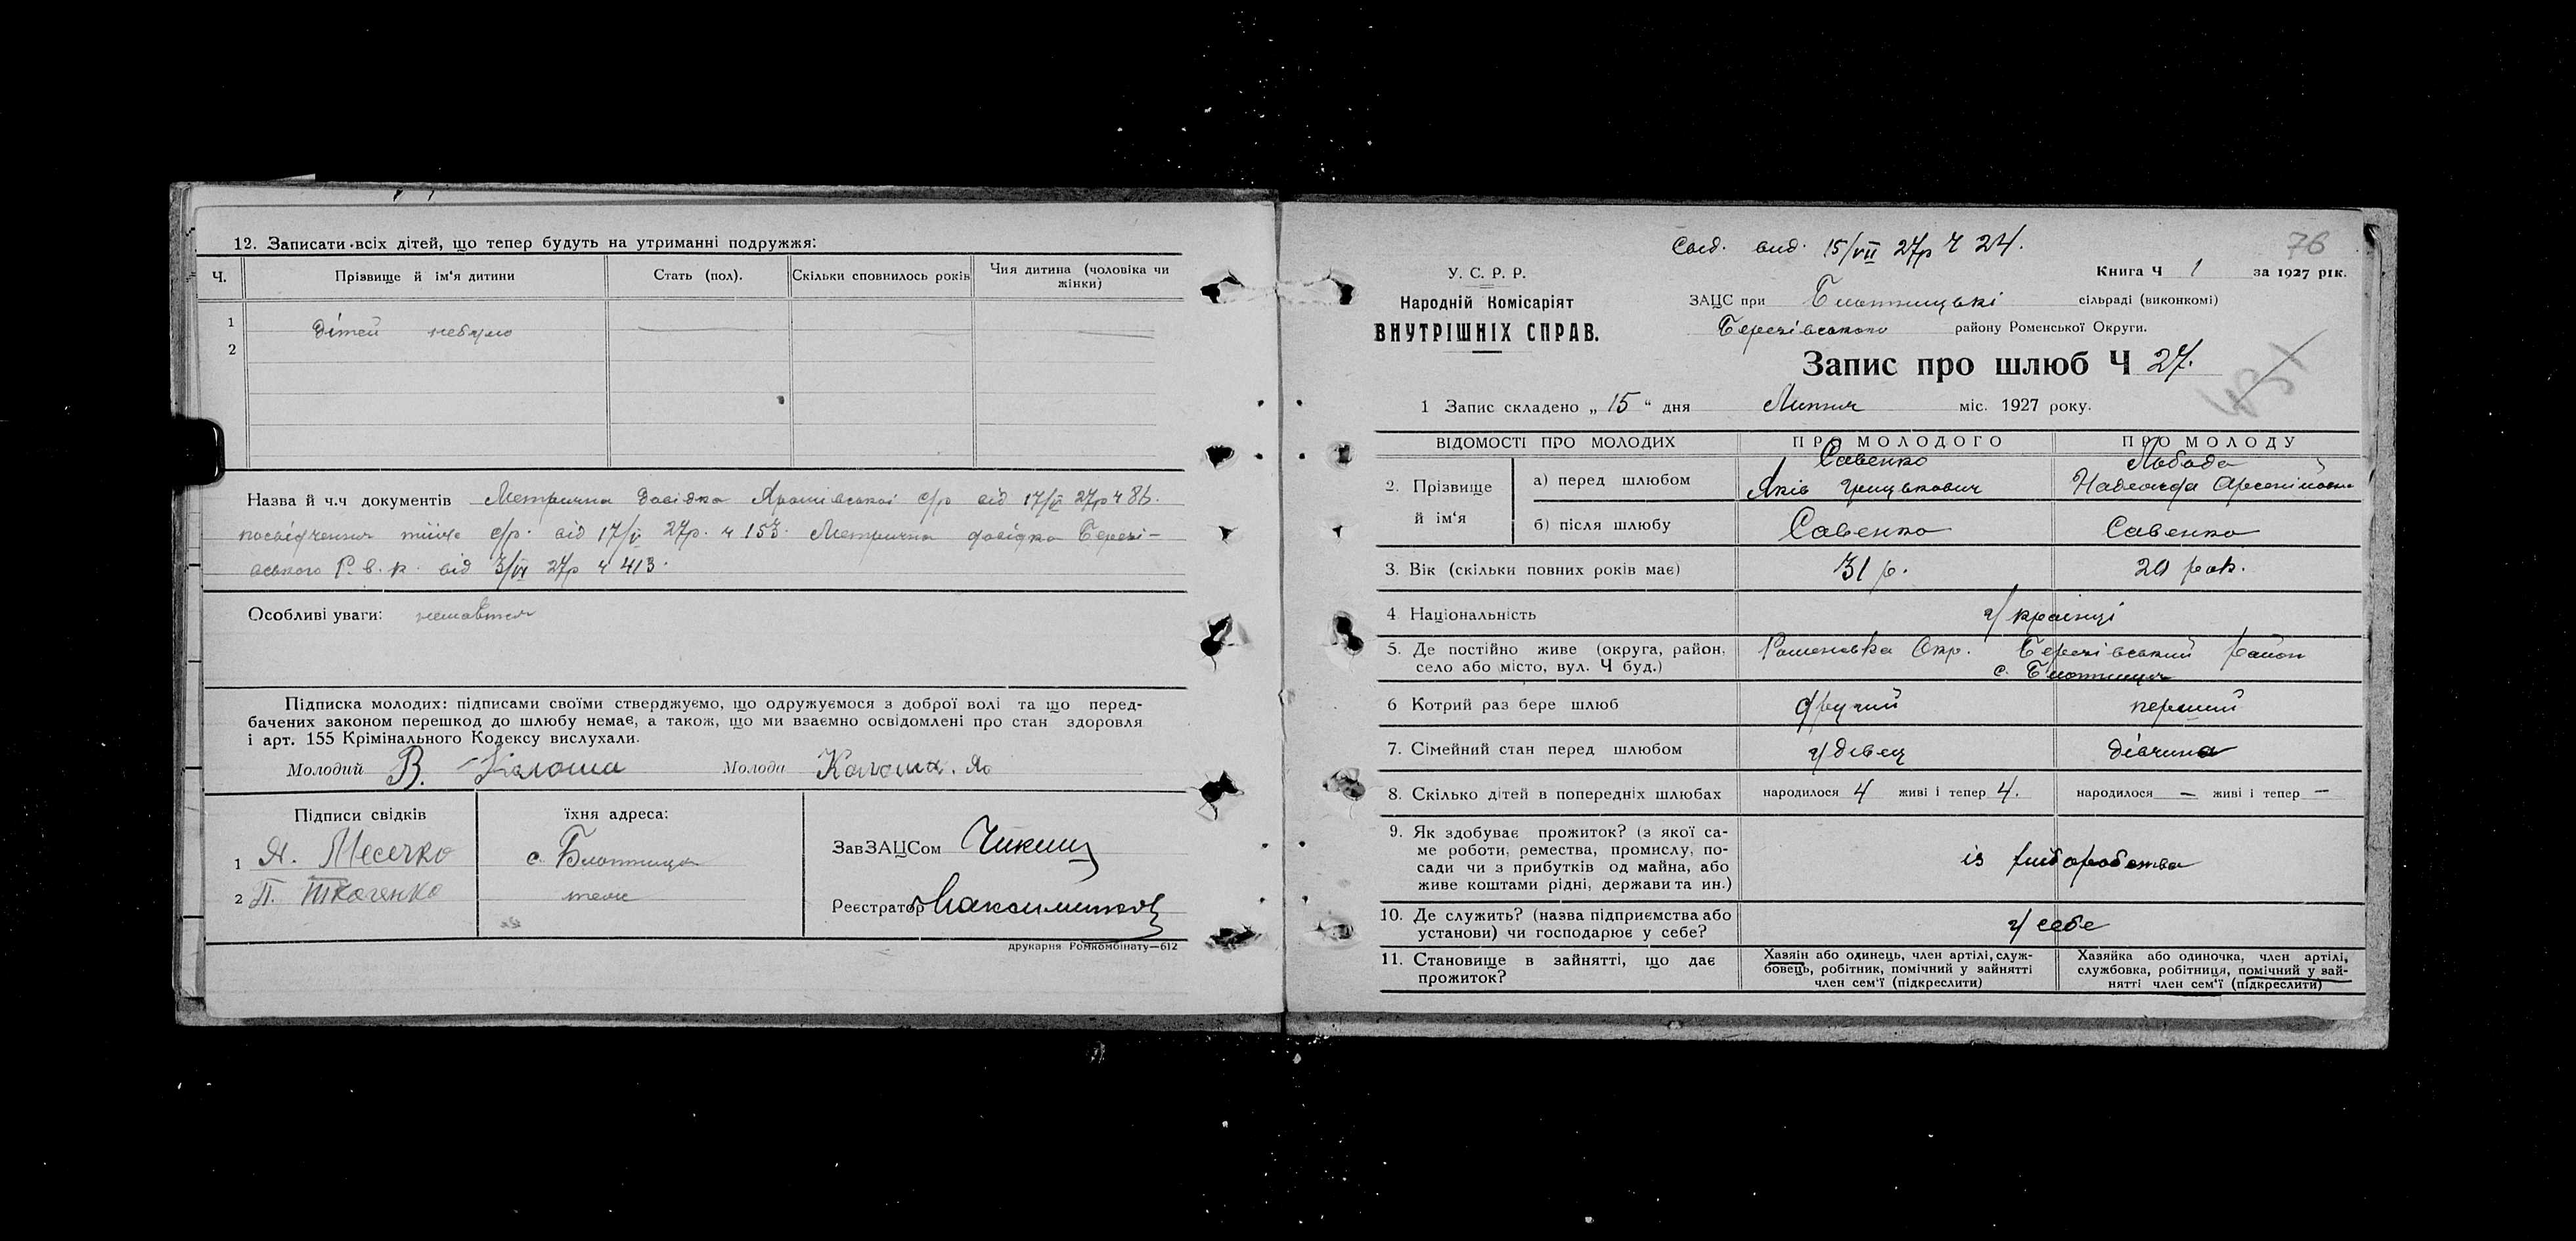 12. Записати всіх дітей, що тепер будуть на утриманні подружжя:
Ч. Прізвище й ім'я дитини Стать (пол). Скільки сповнилось років Чия дитина (чоловіка чи жінки)
1 дітей небуло
2
Назва й ч.ч документів Метрична довідка Ярошівської с/р від 17/VI 27р ч 86.
посвідчення тиііє с/р. від 17/V 27р. ч 153. Метрична довідка Березі-
вського Р.в.к. від 3/VI 27р ч 413.
Особливі уваги:
Підписка молодих: підписами своїми стверджуємо, що одружуемося з доброї волі та що перед-
бачених законом перешкод до шлюбу немає, а також, що ми взаємно освідомлені про стан здоровля
і арт. 155 Крімінального Кодексу вислухали.
Молодий В. Калоша Молода Калоша. Яо
Підписи свідків їхня адреса:
1 Я. Месечко с. Блотниця
2 П. Ткаченко теж
ЗавЗАЦСом
Реєстратор
друкарня Ромкомбінату—612
Свід. вид. 15/VII 27р Ч 24.
76
У. С. Р. Р.
Народній Комісаріят
ВНУТРІШНІХ СПРАВ.
Книга Ч 1 за 1927 рік.
ЗАЦС при Блотницькі сільраді (виконкомі)
Березівського району Роменської Округи.
Запис про шлюб Ч 27.
1 Запис складено „ 15 “ дня Липня міс. 1927 року.
ВІДОМОСТІ ПРО МОЛОДИХ ПРО МОЛОДОГО ПРО МОЛОДУ
2. Прізвище й ім'я
а) перед шлюбом Савенко Яків Грицькович Лобода Надежда Арсеніївна
б) після шлюбу Савенко Савенко
3. Вік (скільки повних років має) 31 р. 20 рок.
4 Національність українці
5. Де постійно живе (округа, район,
село або місто, вул. Ч буд.) Роменська Окр. Березівський район
с. Блотниця
6 Котрий раз бере шлюб другий перший
7. Сімейний стан перед шлюбом удівец дівчина
8. Скілько дітей в попередніх шлюбах народилося 4 живі і тепер 4. народилося — живі і тепер —
9. Як здобуває прожиток? (з якої са-
ме роботи, ремества, промислу, по-
сади чи з прибутків од майна, або
живе коштами рідні, держави та ин.) із хліборобства
10. Де служить? (назва підприємства або
установи) чи господарює у себе? у себе
11. Становище в зайнятті, що дає
прожиток?
Хазяїн або одинець, член артілі, служ-
бовець, робітник, помічний у зайнятті
член сем'ї (підкреслити)
Хазяйка або одиночка, член артілі,
службовка, робітниця, помічний у зай-
нятті член сем'ї (підкреслити)